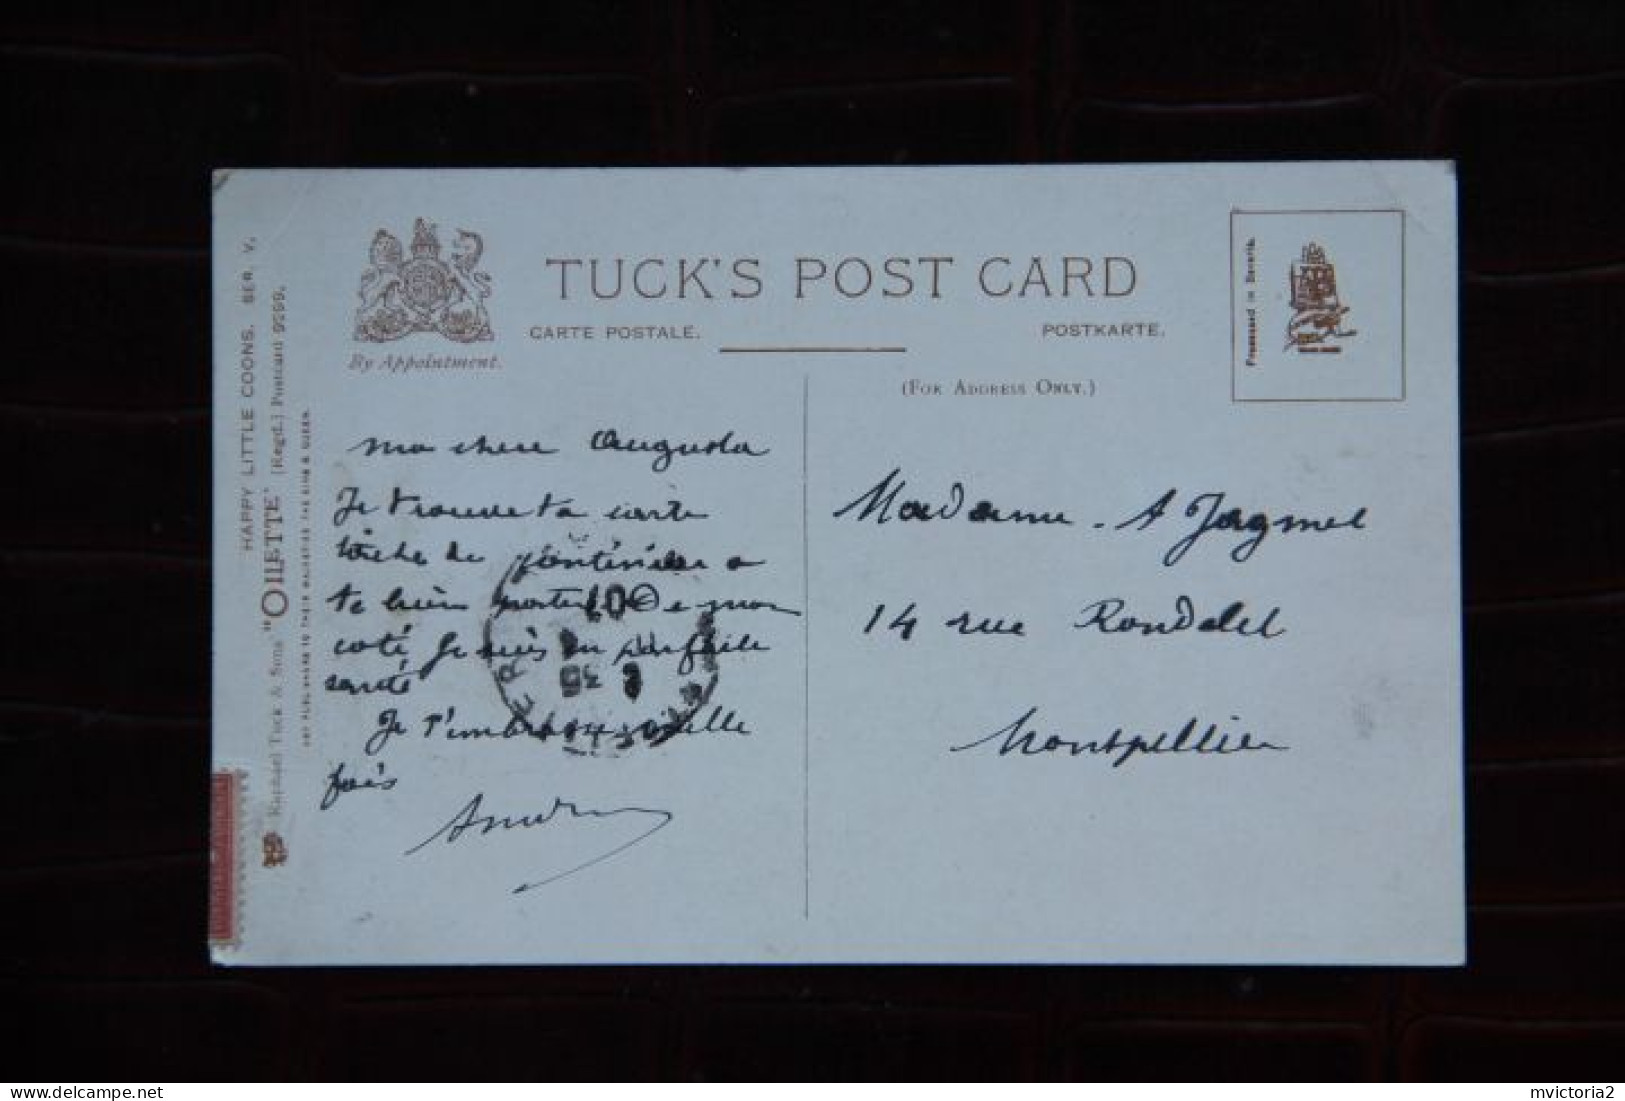 TUCK'S POST CARD
CARTE POSTALE.
POSTKARTE.
By Appointment.
(FOR ADDRESS ONLY.)
Processed in Bavaria.
HAPPY LITTLE COONS. SER. V.
Raphael Tuck & Sons "OILETTE" [Regd.] Postcard 9299.
ART PUBLISHERS TO THEIR MAJESTIES THE KING & QUEEN.
Ma chere Augusta
Je trouve ta carte
tâche de continuer a
te bien porter De mon
coté Je suis en parfaite
santé
Je t'embrasse mille
fois
Madame A Jagmel
14 rue Rondelet
Montpellier
mvictoria2